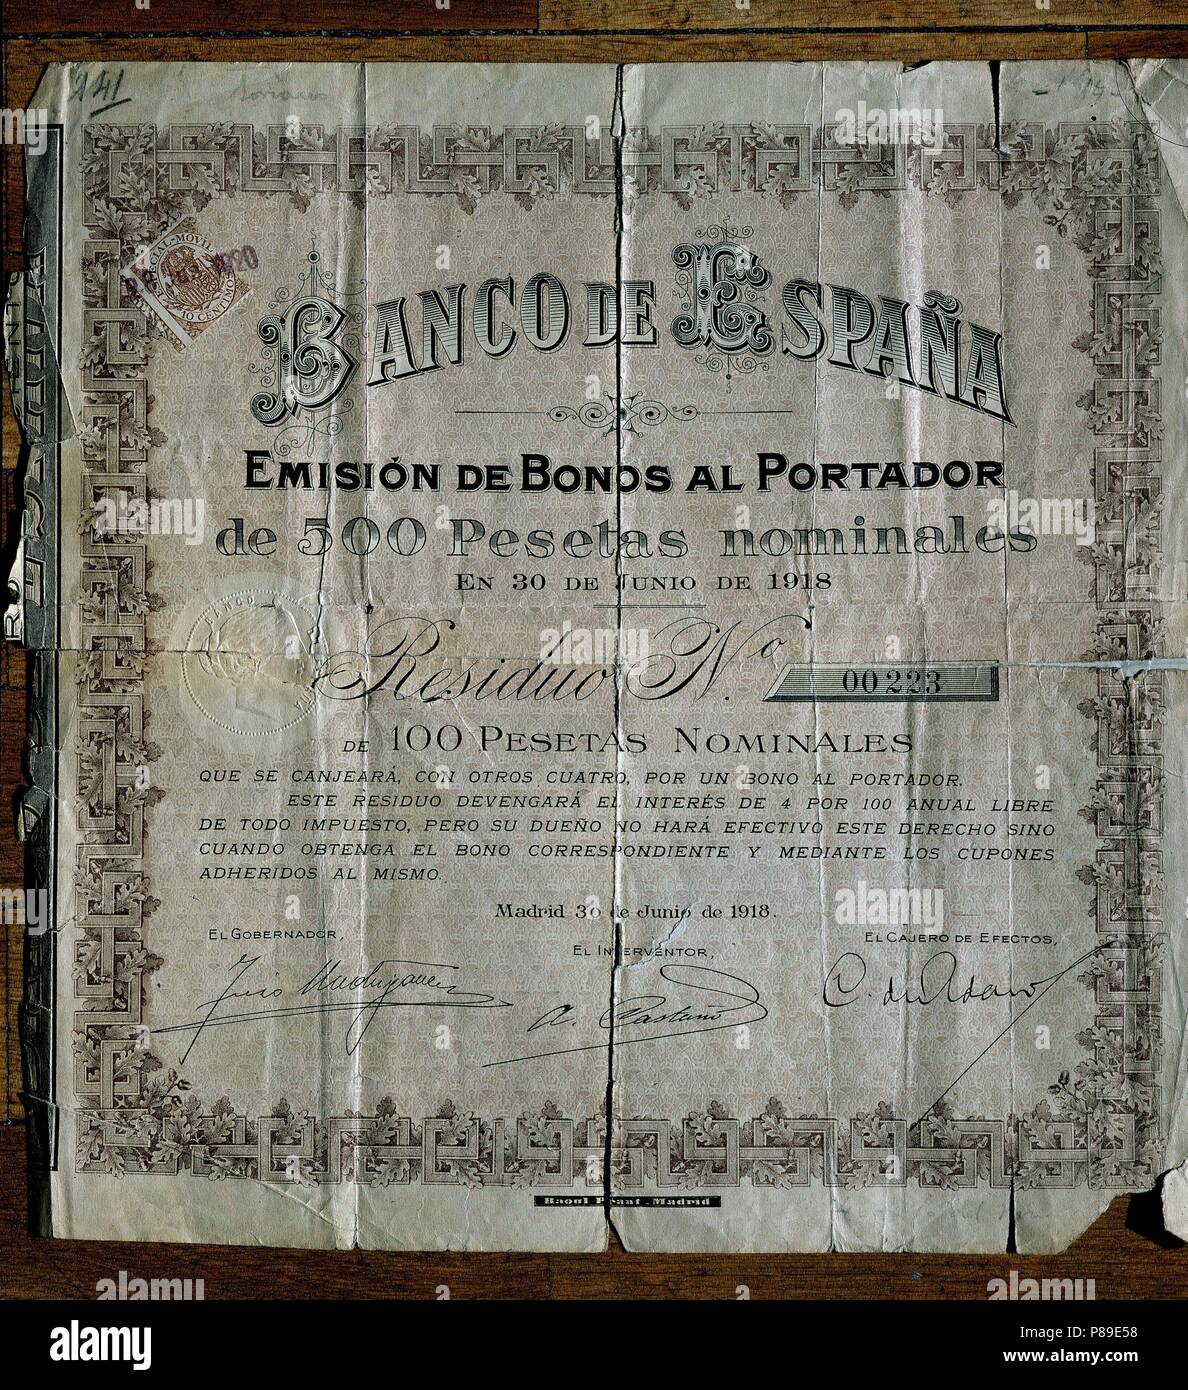 241
ESPECIAL-MOVIL
1920
10 CENTIMOS
BANCO DE ESPAÑA
EMISIÓN DE BONOS AL PORTADOR
de 500 Pesetas nominales
EN 30 DE JUNIO DE 1918
BANCO
Residuo N.º 00223
DE 100 PESETAS NOMINALES
QUE SE CANJEARÁ, CON OTROS CUATRO, POR UN BONO AL PORTADOR.
ESTE RESIDUO DEVENGARÁ EL INTERÉS DE 4 POR 100 ANUAL LIBRE
DE TODO IMPUESTO, PERO SU DUEÑO NO HARÁ EFECTIVO ESTE DERECHO SINO
CUANDO OBTENGA EL BONO CORRESPONDIENTE Y MEDIANTE LOS CUPONES
ADHERIDOS AL MISMO.
Madrid 30 de Junio de 1918.
EL GOBERNADOR,
EL INTERVENTOR,
EL CAJERO DE EFECTOS,
A. Castaño
Raoul Péant_Madrid
alamy stock photo
P89E58
www.alamy.com